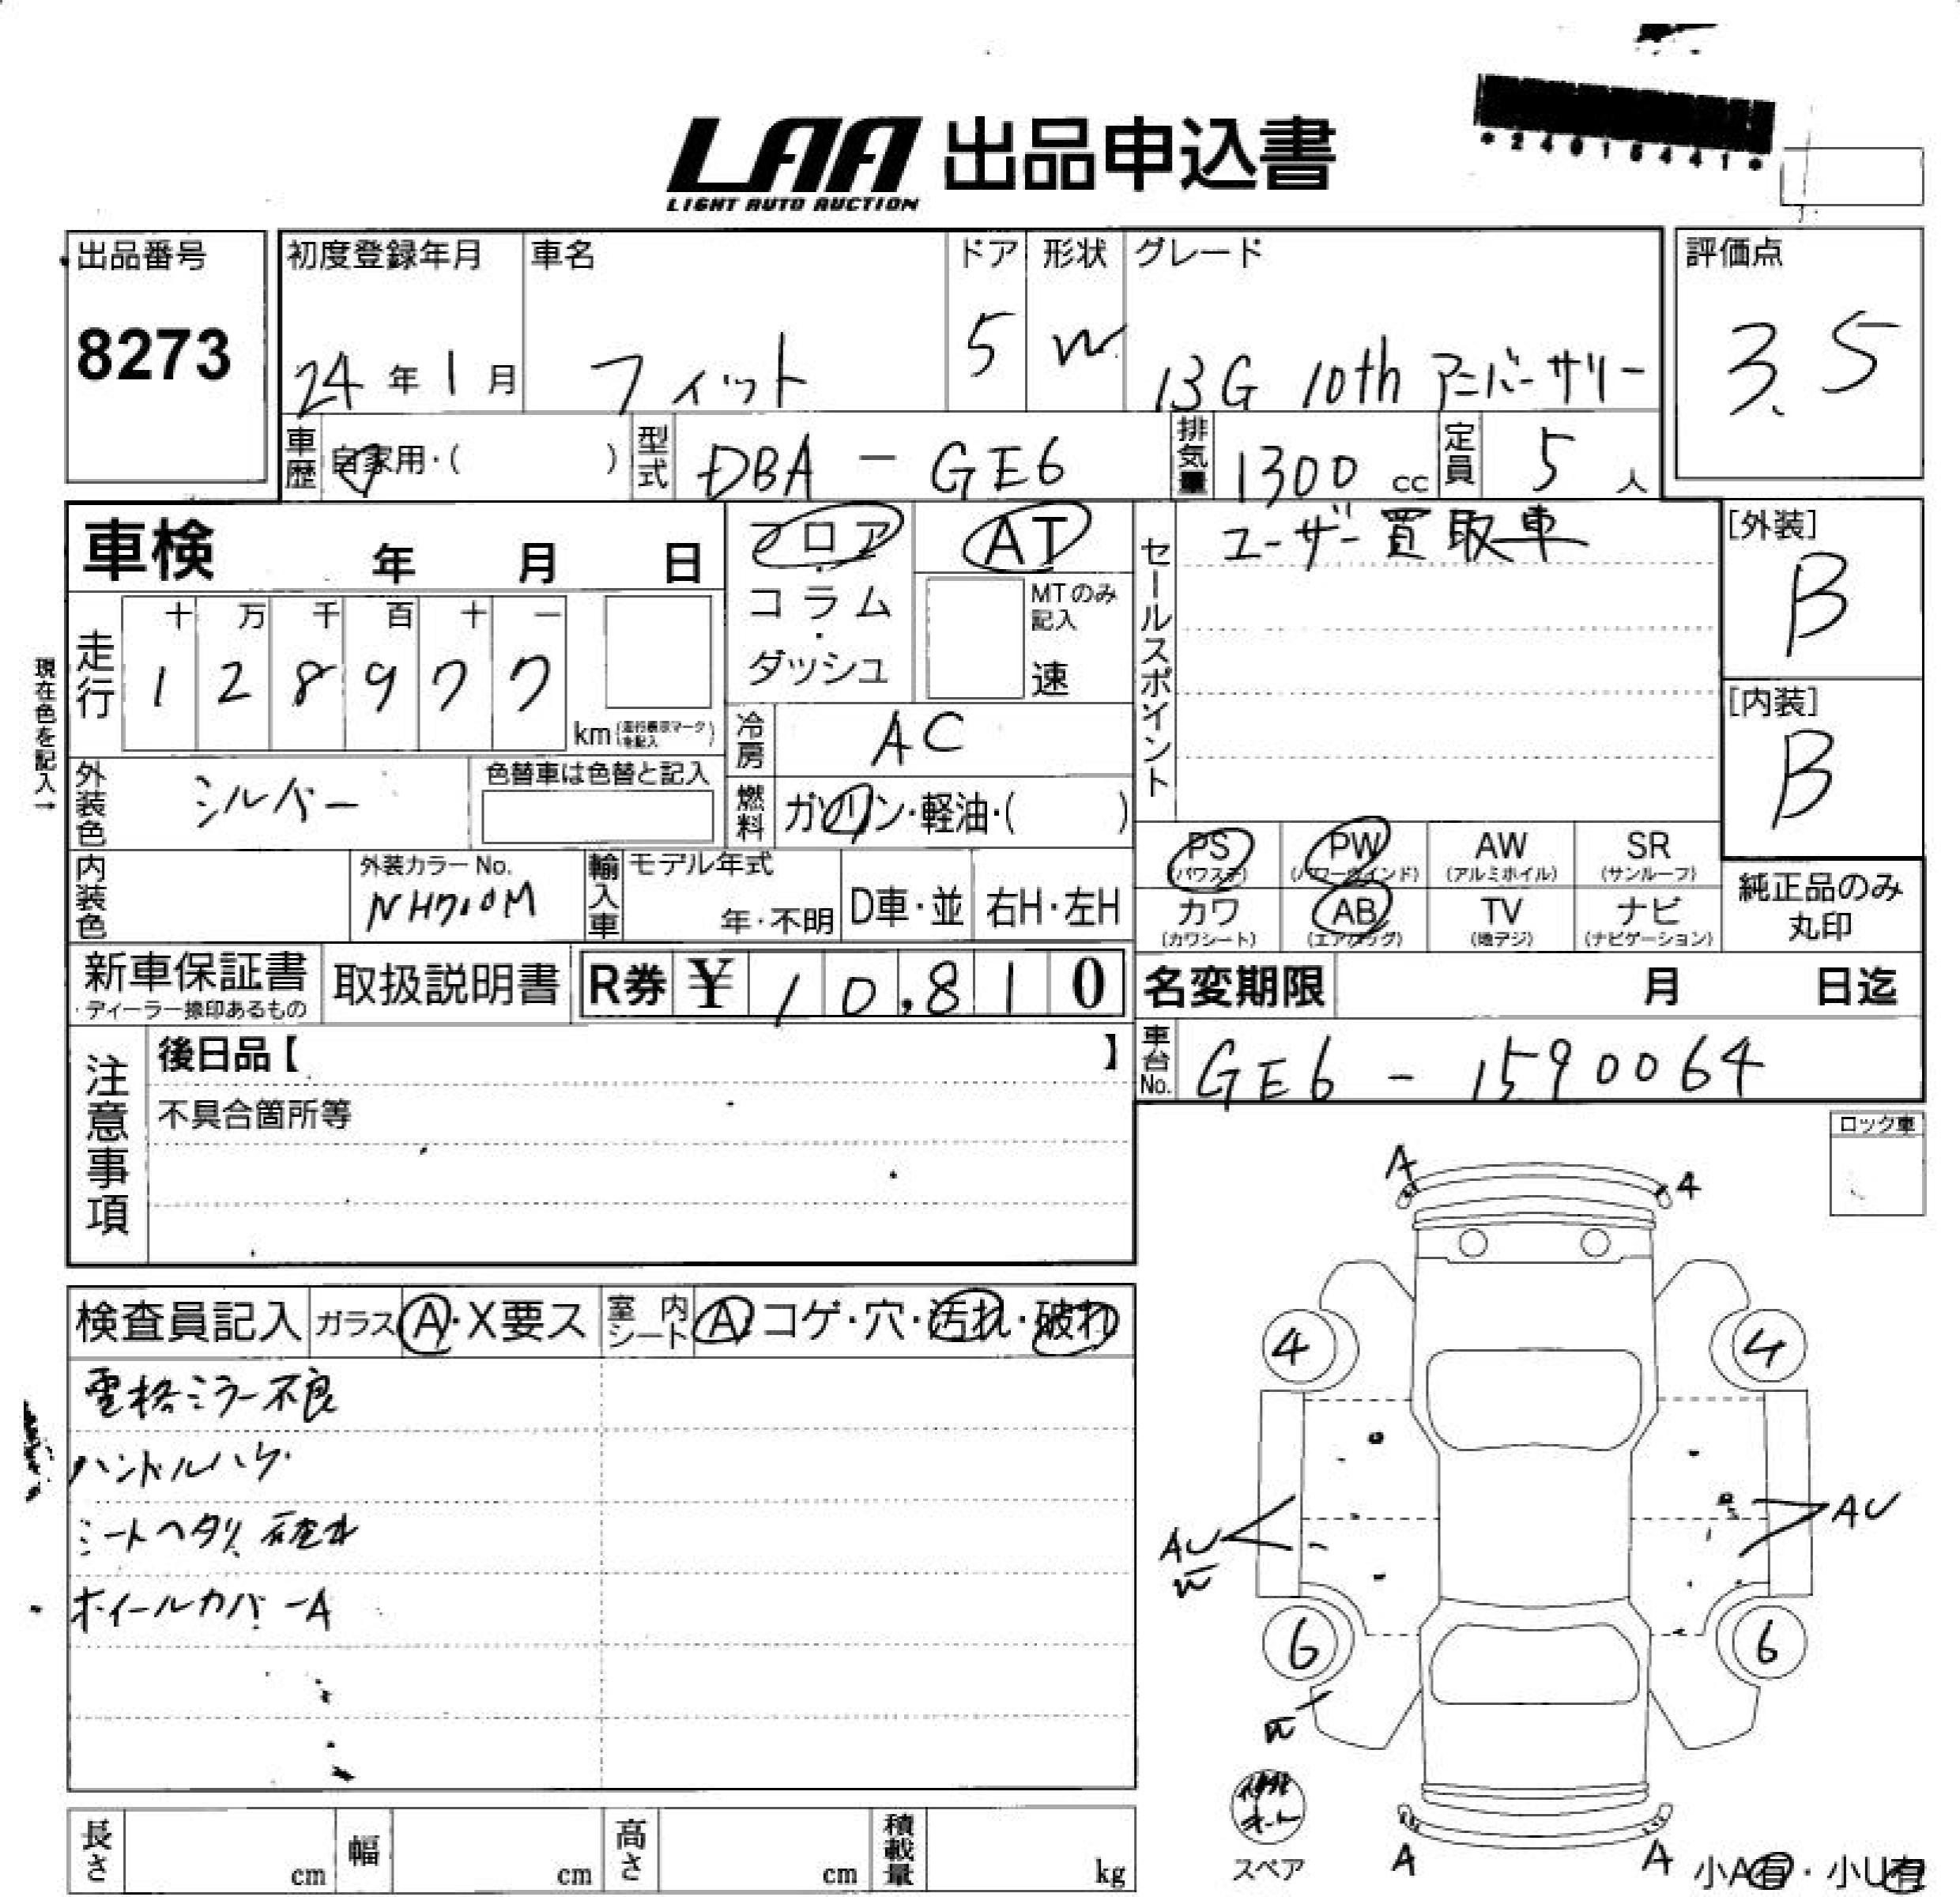 LAA 出品申込書
LIGHT AUTO AUCTION
*24015441*
出品番号
8273
初度登録年月
24年1月
車名
フィット
ドア
5
形状
W
グレード
13G 10th アニバーサリー
評価点
3.5
車歴 自家用・( )
型式 DBA - GE6
排気量 1300 cc
定員 5 人
車検 年 月 日
フロア・コラム・ダッシュ
AT
MTのみ記入
速
セールスポイント
ユーザー買取車
[外装]
B
[内装]
B
現在色を記入→
走行
十 万 千 百 十 一
1 2 8 9 7 7
km (走行表示マークを記入)
冷房 AC
外装色 シルバー
色替車は色替と記入
燃料 ガソリン・軽油・( )
PS (パワステ)
PW (パワーウインド)
AW (アルミホイル)
SR (サンルーフ)
カワ (カワシート)
AB (エアバッグ)
TV (地デジ)
ナビ (ナビゲーション)
純正品のみ丸印
内装色
外装カラーNo.
NH700M
輸入車
モデル年式
年・不明
D車・並
右H・左H
新車保証書
・ディーラー捺印あるもの
取扱説明書
R券 ¥ 10,810
名変期限 月 日迄
車台No. GE6 - 1590064
注意事項
後日品【 】
不具合箇所等
ロック車
検査員記入
ガラス A・X要ス
室内シート A コゲ・穴・汚れ・破れ
電格ミラー不良
ハンドルハゲ
シートヘタリ 破れ
ホイールカバーA
A A
4 4
AU
W
AU
6 6
W
スペア
A A
小A有・小U有
長さ cm
幅 cm
高さ cm
積載量 kg